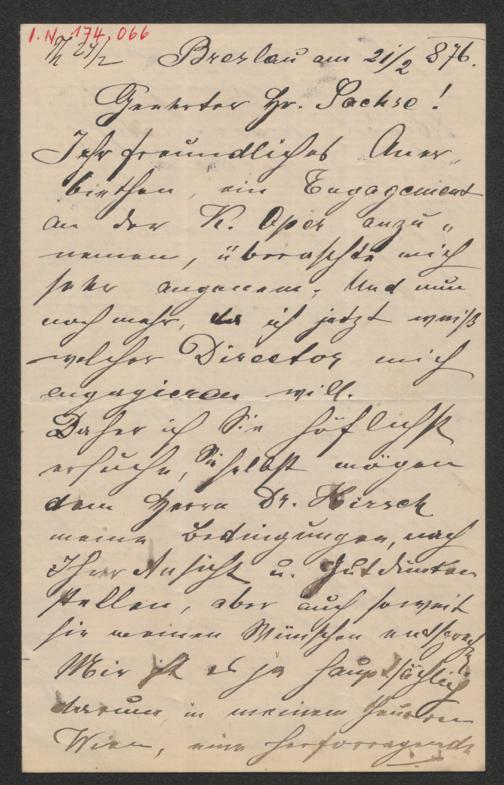 I.N. 174.066
Breslau am 21/2 876.
Geehrter Hr. Sachse!
Ihr freundliches Aner-
biethen, ein Engagement
an der K. Oper anzu-
nemen, überraschte mich
sehr angenem; Und nun
noch mehr, da ich jetzt weiß
welcher Director mich
engagieren will.
Daher ich Sie höflichst
ersuche, Sie selbst mögen
dem Herrn Dr. Hirsch
meine Bedingungen, nach
Ihrer Ansicht u. Gutdünken
stellen, aber auch soweit
sie meinen Wünschen entsprech
Mir ist es ja hauptsächlich
darum, in meinem
Wien, eine herforragende